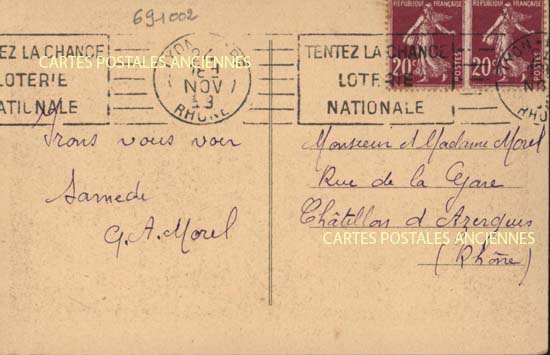 691002
REPUBLIQUE FRANÇAISE
REPUBLIQUE FRANÇAISE
20c POSTES
20c POSTES
EZ LA CHANCE
LOTERIE
NATIONALE
NOV
RHONE
TENTEZ LA CHANCE
LOTERIE
NATIONALE
CARTES POSTALES ANCIENNES
CARTES POSTALES ANCIENNES
Irons vous voir
Samedi
G. A. Morel
Monsieur et Madame Morel
Rue de la Gare
Châtillon d'Azergues
(Rhône)
CARTES POSTALES ANCIENNES